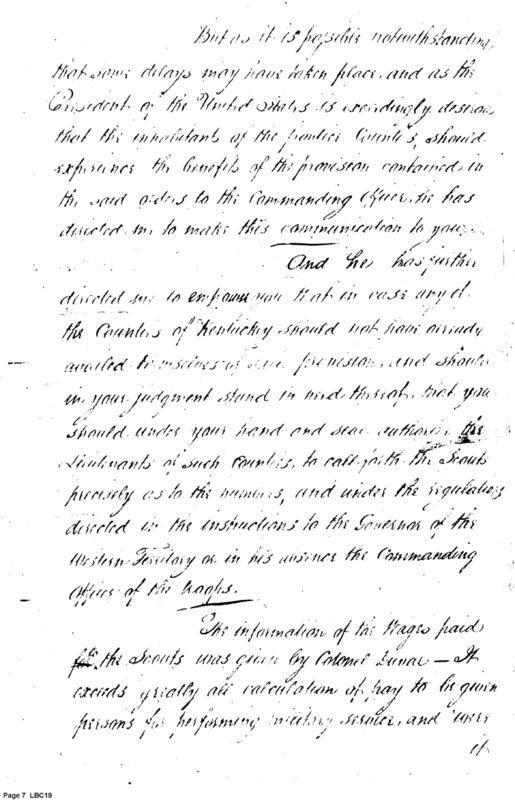 But as it is possible notwithstanding,
that some delays may have taken place, and as the
President of the United States is exceedingly desirous
that the inhabitants of the frontier Counties, should
experience the benefits of the provision contained in
the said orders to the Commanding Officer, he has
directed me to make this communication to you.
And he has further
directed me to empower you that in case any of
the Counties of Kentucky should not have already
availed themselves of said provision, and should
in your judgment stand in need thereof, that you
should under your hand and seal authorize the
Lieutenants of such Counties, to call forth the Scouts
precisely as to the numbers, and under the regulations
directed in the instructions to the Governor of the
Western Territory or in his absence the Commanding
Officer of the troops.
The information of the Wages paid
for the Scouts was given by Colonel — It
exceeds greatly all calculation of pay to be given
persons for performing military service, and were
it
Page 7 LBC19